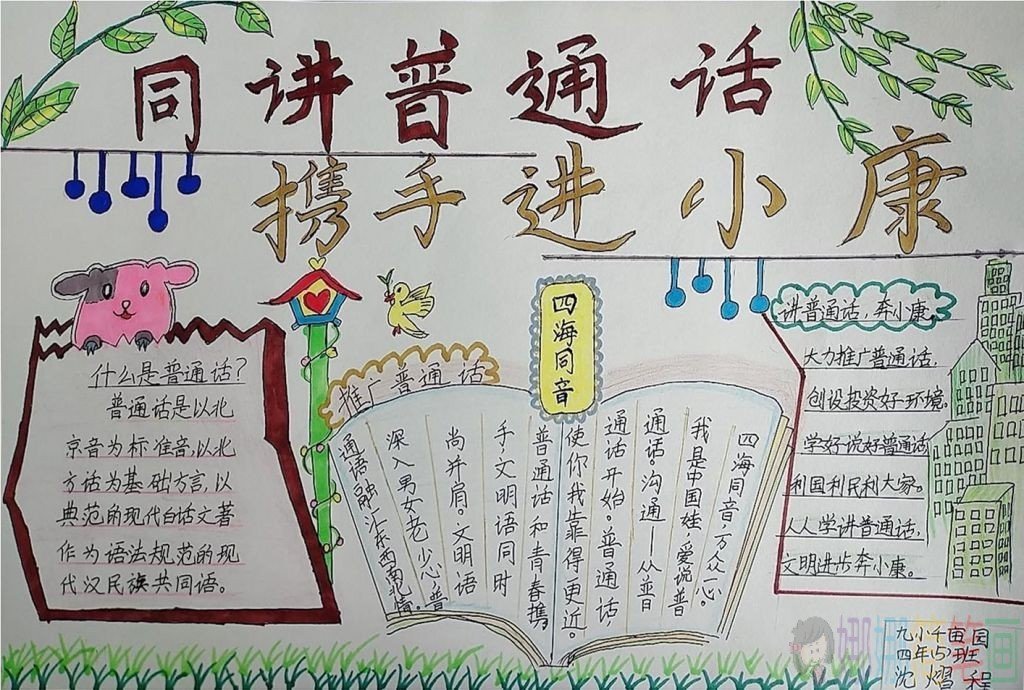 同讲普通话
携手进小康
什么是普通话?
普通话是以北
京音为标准音,以北
方话为基础方言,以
典范的现代白话文著
作为语法规范的现
代汉民族共同语。
推广普通话
四海同音
四海同音万众一心。
我是中国娃,爱说普
通话。沟通——从普
通话开始。普通话
使你我靠得更近。
普通话和青春携
手,文明语同时
尚并肩。文明语
深入男女老少心,普
通话融汇东西南北情。
讲普通话,奔小康。
大力推广普通话,
创设投资好环境。
学好说好普通话
利国利民利大家。
人人学讲普通话,
文明进步奔小康。
九小千亩园
四年(5)班
沈熠程